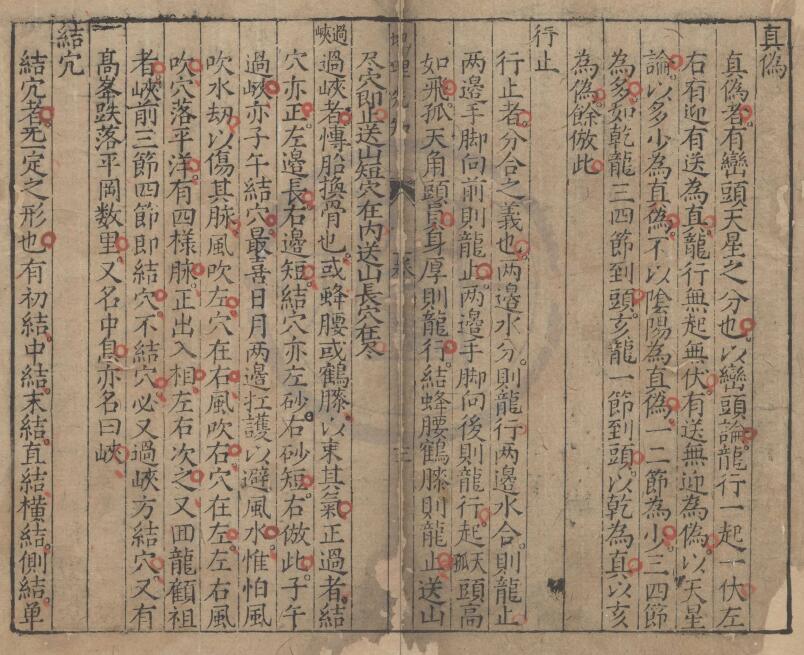 真偽
真偽者有巒頭天星之分也以巒頭論龍行一起一伏左
右有迎有送為真龍行無起無伏有送無迎為偽以天星
論以多少為真偽不以陰陽為真偽一二節為少三四節
為多如乾龍三四節到頭亥龍一節到頭以乾為真以亥
為偽餘倣此
行止
行止者分合之義也兩邊水分則龍行兩邊水合則龍止
兩邊手脚向前則龍止兩邊手脚向後則龍行起天孤頭高
如飛孤天角頭身厚則龍行結蜂腰鶴膝則龍止送山
尽穴即止送山短穴在内送山長穴在尽
過峽
過峽者傳胎換骨也或蜂腰或鶴膝以束其氣正過者結
穴亦正左邊長右邊短結穴亦左砂右砂短右倣此子午
過峽亦子午結穴最喜日月两邊扛護以避風水惟怕風
吹水刼以傷其脉風吹左穴在右風吹右穴在左左右風
吹穴落平洋有四樣脉正出入相左右次之又回龍顧祖
者峽前三節四節即結穴不結穴必又過峽方結穴又有
高峯跌落平岡数里又名中息亦名曰峽
結穴
結穴者无一定之形也有初結中結末結直結橫結側結单